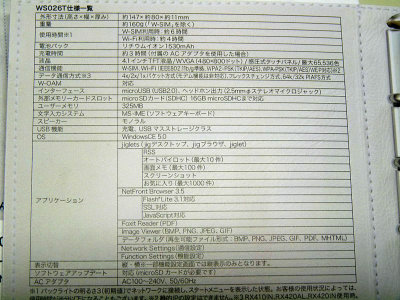 WS026T仕様一覧
外形寸法(高さ×幅×厚み) 約147×約80×約11mm
重量 約160g(「W-SIM」を除く)
使用時間※1 W-SIM利用時:約6時間
Wi-Fi利用時:約4時間
電池パック リチウムイオン 1530mAh
充電時間 約3時間(付属のACアダプタを使用した場合)
液晶 4.1インチTFT液晶/WVGA(480×800ドット)/感圧式タッチパネル/最大65,536色
通信機能
データ通信方式※3
W-OAM 対応
インターフェース microUSB(USB2.0)、ヘッドホン出力(2.5mmφステレオマイクロジャック)
外部メモリーカードスロット microSDカード(SDHC) 16GB microSDHCまで対応
ユーザーメモリ 325MB
文字入力システム MS-IME(ソフトウェアキーボード)
スピーカー モノラル
USB機能 充電、USBマスストレージクラス
OS WindowsCE 5.0
アプリケーション
jiglets(ジグデスクトップ、jigブラウザ、jiglet)
RSS
オートパイロット(最大10件)
画面メモ(最大100件)
スクリーンショット
お気に入り(最大1000件)
NetFront Browser 3.5
Flash®Lite 3.1対応
SSL対応
JavaScript対応
Foxit Reader(PDF)
Image Viewer(BMP、PNG、JPEG、GIF)
データフォルダ(再生可能ファイル形式:BMP、PNG、JPEG、GIF、PDF、MHTML)
Network Settings(通信設定)
Function Settings(機能設定)
表示切替 縦・横 ※一部機能設定画面では縦表示のみとなります。
ソフトウェアアップデート 対応(microSDカードが必要です)
ACアダプタ AC100~240V、50/60Hz